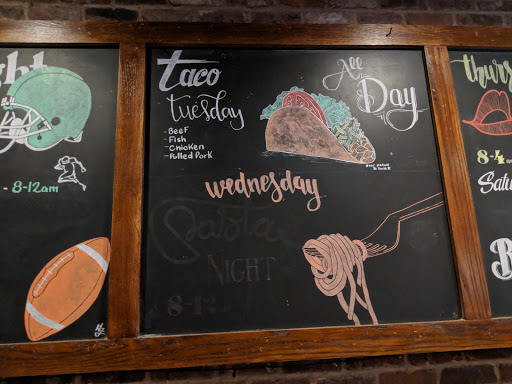 ght
- 8-12am
taco
tuesday
- Beef
- Fish
- Chicken
- Pulled Pork
All
Day
wednesday
Pasta
NIGHT
8-12
thurs
8-4
Satu